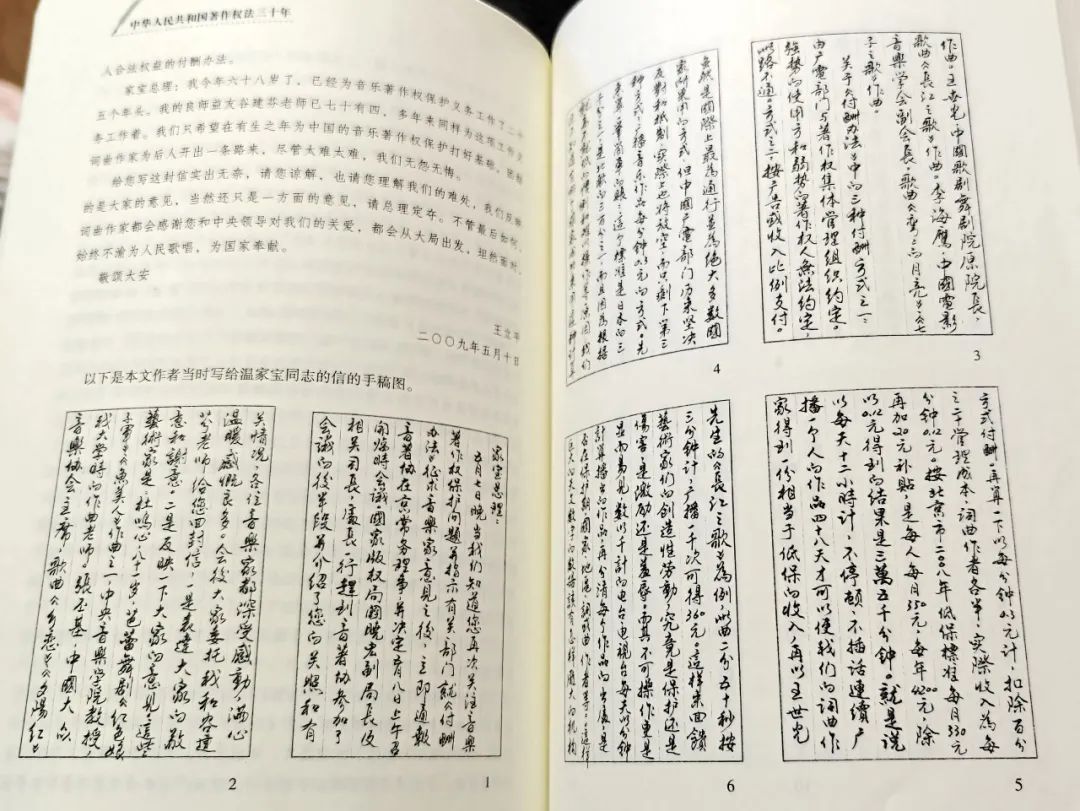 中华人民共和国著作权法三十年
人合法权益的付酬办法。
家宝总理：我今年六十八岁了，已经为音乐著作权保护义务工作了二十
五个年头。我的良师益友谷建芬老师已七十有四，多年来同样为这项工作义
务工作着。我们只希望在有生之年为中国的音乐著作权保护打好基础，团结
词曲作家为后人开出一条路来，尽管太难太难，我们无怨无悔。
给您写这封信实出无奈，请您谅解、也请您理解我们的难处，我们反映
的是大家的意见，当然还只是一方面的意见，请总理定夺。不管最后如何，
词曲作家都会感谢您和中央领导对我们的关爱，都会从大局出发，坦然面对，
始终不渝为人民歌唱，为国家奉献。
敬颂大安
王立平
二〇〇九年五月十日
以下是本文作者当时写给温家宝同志的信的手稿图。
家宝总理：
五月七日晚当我们知道您再次关注音樂
著作权保护问题并指示有关部门就付酬
办法征求音樂家意见之後，立即通報
音著协在京常务理事并决定有八日上午五
開临時會議。國家版权局閻晓宏副局長及
相关司長、處長一行趕到音著协参加了
会議的後半段并介绍了您的关照和有
1
关情况，各位音樂家都深受感動、满心
温暖感慨良多。会後大家委托我和谷建
芬老師给您回封信，一是表達大家的敬
意和謝意。二是反映一下大家的意見，這些
藝術家是：杜鸣心，八十岁，芭蕾舞劇《红色娘
子軍》《魚美人》作曲之一，中央音樂学院教授，
我大学時的作曲老師；張丕基，中國大众
音樂协会主席，歌曲《乡恋》《夕陽红》
2
作曲。王世光，中國歌剧舞剧院原院長，
歌曲《長江之歌》作曲。李海鹰，中國電影
音樂学会副会長，歌曲《弯弯的月亮》《七
子之歌》作曲。
关于《付酬办法》中的三种付酬方式之一：
由广電部門与著作权集体管理组织约定。
強勢的使用方和弱勢的著作权人無法约定，
此路不通。方式之二，按广告或收入比例支付。
3
虽然是國際上最為通行並為绝大多數國
家所采用的方式，但中國广電部门历来坚决
反對和抵制，实際上也将放空，而只剩下第三
种方式：广播音乐作品每分钟0.3元的方式。先
4
方式付酬。再算一下以每分钟0.3元计，扣除百分
之二十管理成本，词曲作者各半，实際收入為每
分钟0.12元。按北京市二〇〇八年低保標准每月330元
再加20元补贴，是每人每月350元，每年4200元，除
以0.12元得到的结果是三萬五千分钟。就是说
以每天十二小時計，不停頓、不插話連續广
播一个人的作品四十八天才可以使我们的词曲作
家得到一份相当于低保的收入，再以王世光
5
先生的《長江之歌》為例，此曲二分五十秒按
三分钟計，广播一千次可得360元。這样来回饋
藝術家们的创造性勞動，究竟是保护还是
傷害，是激励还是羞辱，而其不可操作更是
显而易見，數以千計的电台电視台每天以分钟
計算播出的作品，再分清每个作品的出處，是
6